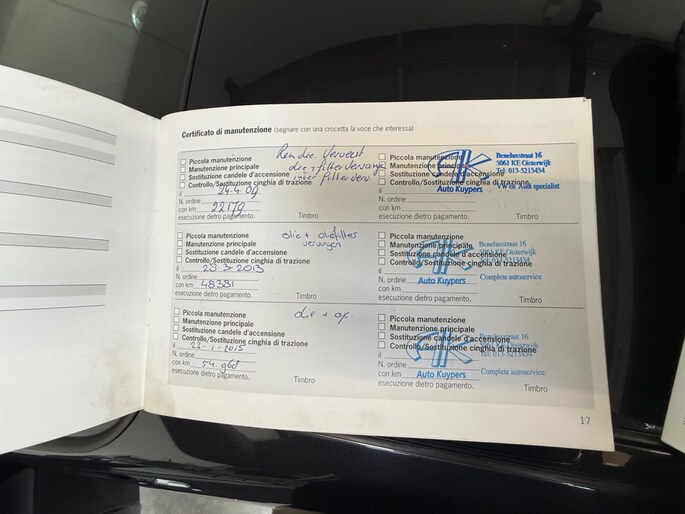 Certificato di manutenzione (segnare con una crocetta la voce che interessa)
Piccola manutenzione
Manutenzione principale
Sostituzione candele d'accensione
Controllo/Sostituzione cinghia di trazione
il 24.4.09
N. ordine
con km 22179
esecuzione dietro pagamento.
Timbro
Vervest
Piccola manutenzione
Manutenzione principale
Sostituzione candele d'accensione
Controllo/Sostituzione cinghia di trazione
N. ordine
con km
esecuzione dietro pagamento.
Timbro
Auto Kuypers
Benehestraat 16
5061 KE Oisterwijk
Tel: 013-5213434
VW en Audi specialist
Piccola manutenzione
Manutenzione principale
Sostituzione candele d'accensione
Controllo/Sostituzione cinghia di trazione
il 28-3-2013
N. ordine
con km 48381
esecuzione dietro pagamento.
Timbro
olie + oliefilter
vervangen
Piccola manutenzione
Manutenzione principale
Sostituzione candele d'accensione
Controllo/Sostituzione cinghia di trazione
N. ordine
con km
esecuzione dietro pagamento.
Timbro
Auto Kuypers
5061 KE Oisterwijk
Complete autoservice
Piccola manutenzione
Manutenzione principale
Sostituzione candele d'accensione
Controllo/Sostituzione cinghia di trazione
N. ordine
con km
esecuzione dietro pagamento.
Timbro
olie +
Piccola manutenzione
Manutenzione principale
Sostituzione candele d'accensione
Controllo/Sostituzione cinghia di trazione
N. ordine
con km
esecuzione dietro pagamento.
Timbro
Auto Kuypers
Tel: 013-5213434
Complete autoservice
17